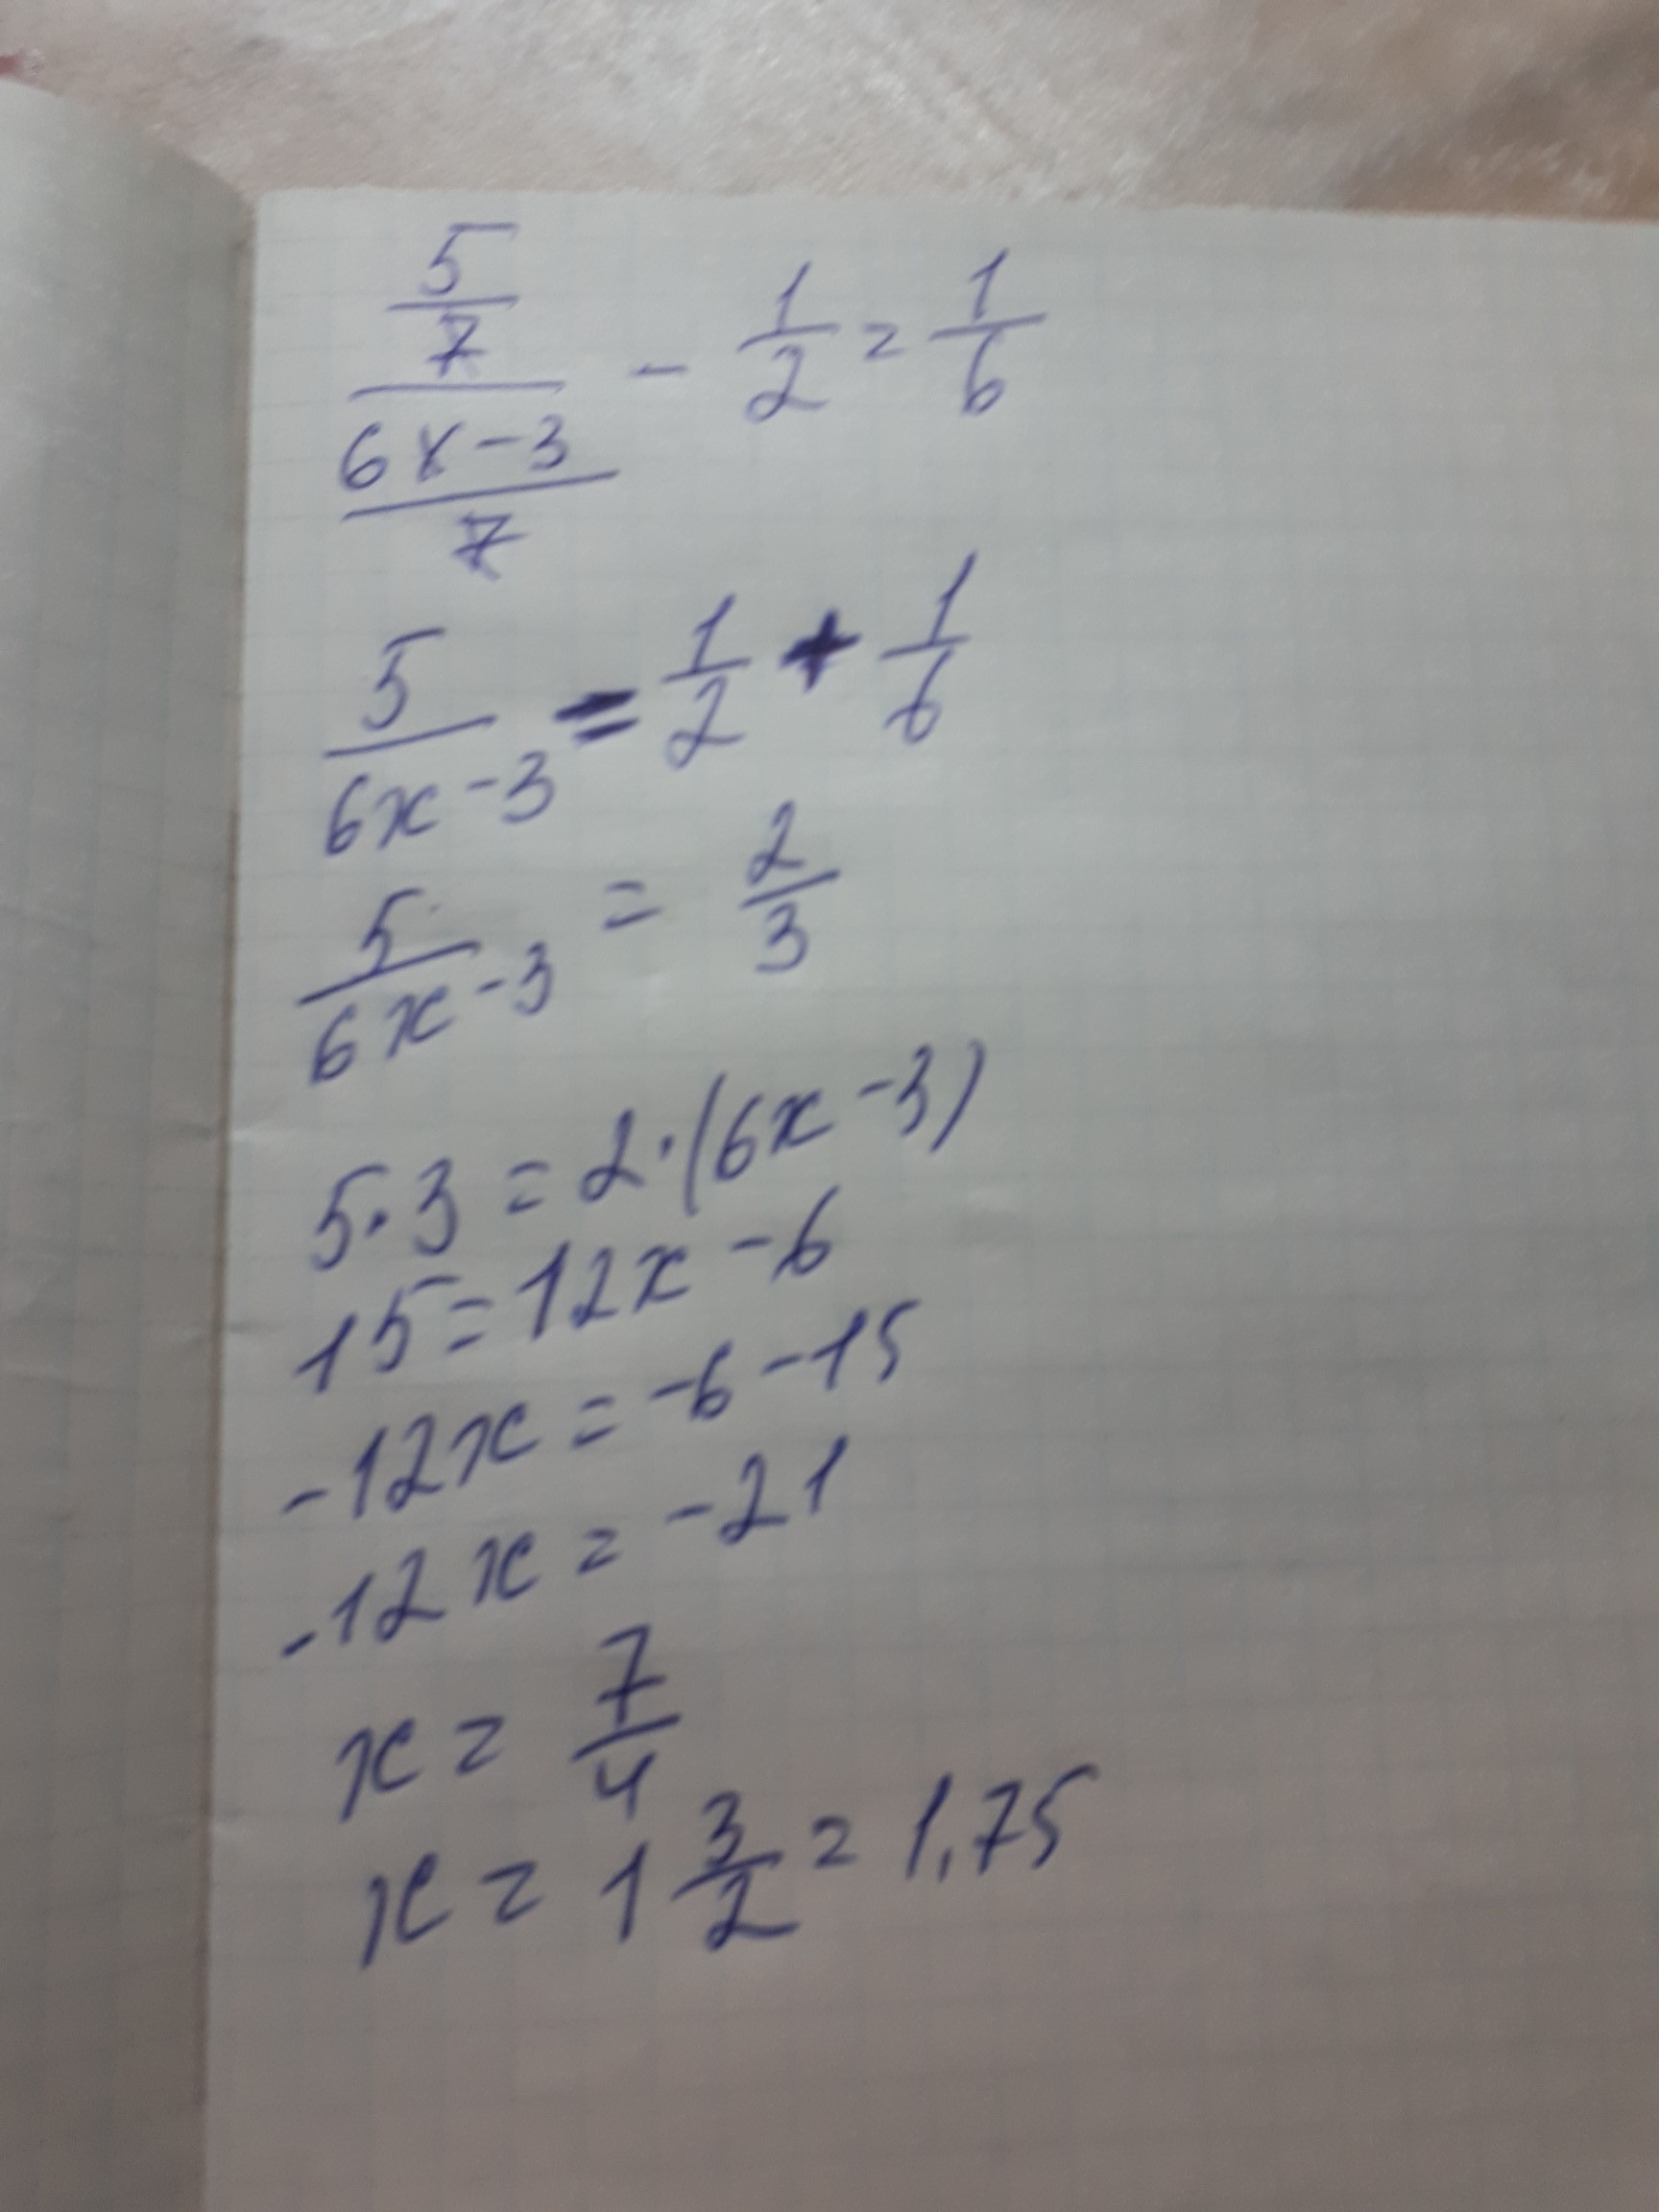 5/7 / (6x-3)/7 - 1/2 = 1/6
5/(6x-3) = 1/2 + 1/6
5/(6x-3) = 2/3
5·3=2·(6x-3)
15=12x-6
-12x=-6-15
-12x=-21
x=7/4
x=1 3/2=1,75